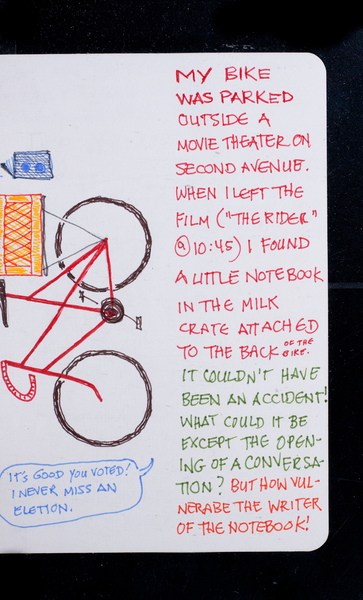 MY BIKE
WAS PARKED
OUTSIDE A
MOVIE THEATER ON
SECOND AVENUE.
WHEN I LEFT THE
FILM ("THE RIDER"
@ 10:45) I FOUND
A LITTLE NOTEBOOK
IN THE MILK
CRATE ATTACHED
TO THE BACK OF THE BIKE.
IT COULDN'T HAVE
BEEN AN ACCIDENT!
WHAT COULD IT BE
EXCEPT THE OPEN-
ING OF A CONVERSA-
TION? BUT HOW VUL-
NERABE THE WRITER
OF THE NOTEBOOK!
IT'S GOOD YOU VOTED!
I NEVER MISS AN
ELETION.